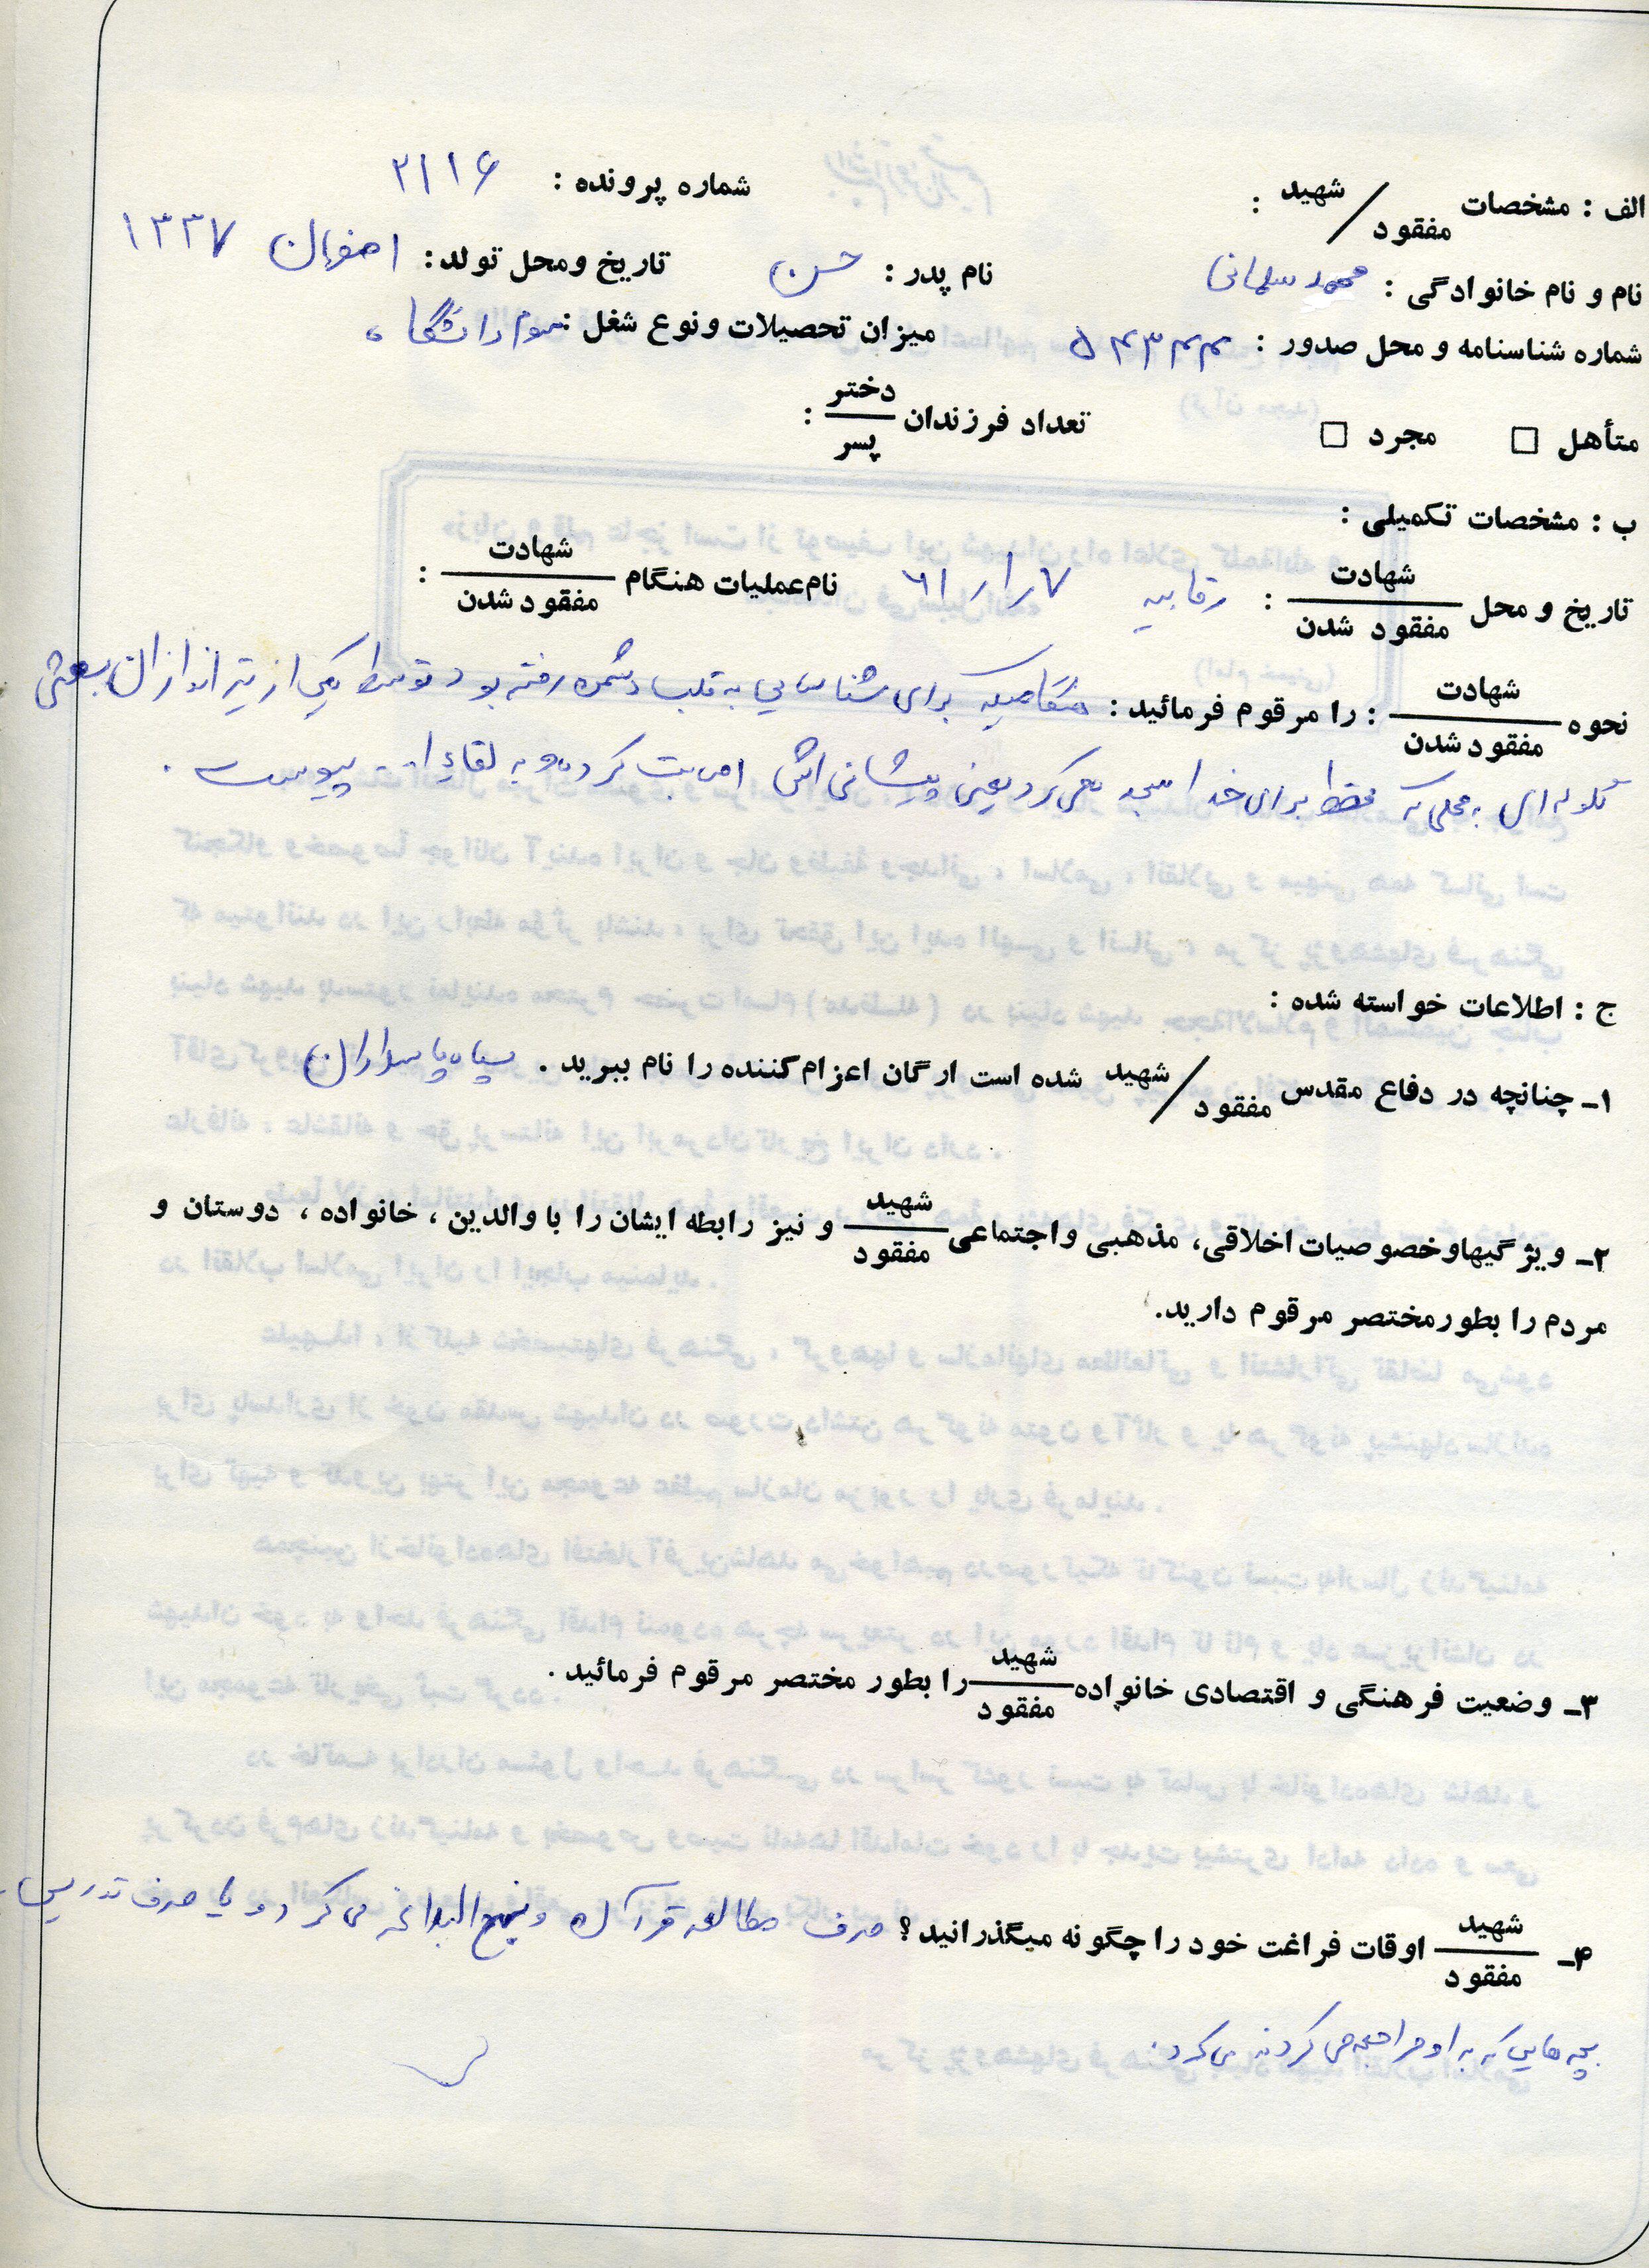 الف : مشخصات شهید / مفقود :
شماره پرونده : ۲۱۱۶
نام و نام خانوادگی : محمد سلمانی نام پدر : حسن تاریخ ومحل تولد : اصفهان ۱۳۳۷
شماره شناسنامه و محل صدور : ۵۴۳۴۴ میزان تحصیلات ونوع شغل : سوم دانشگاه
متأهل □ مجرد □ تعداد فرزندان دختر / پسر :
ب : مشخصات تکمیلی :
تاریخ و محل شهادت / مفقود شدن : رقابیه ۷ر۱ر۶۱ نام عملیات هنگام شهادت / مفقود شدن :
نحوه شهادت / مفقود شدن : را مرقوم فرمائید : هنگامیکه برای شناسایی به قلب دشمن رفته بود توسط یکی از تیراندازان بعثی
گلوله ای به محلی که فقط برای خدا سجده می کرد یعنی پیشانی اش اصابت کرد و به لقاء ا... پیوست .
ج : اطلاعات خواسته شده :
۱ـ چنانچه در دفاع مقدس شهید / مفقود شده است ارگان اعزام کننده را نام ببرید . سپاه پاسداران
۲ـ ویژگیهاوخصوصیات اخلاقی، مذهبی واجتماعی شهید / مفقود و نیز رابطه ایشان را با والدین ، خانواده ، دوستان و
مردم را بطورمختصر مرقوم دارید.
۳ـ وضعیت فرهنگی و اقتصادی خانواده شهید / مفقود را بطور مختصر مرقوم فرمائید .
۴ـ شهید / مفقود اوقات فراغت خود را چگونه میگذرانید؟ صرف مطالعه قرآن و نهج البلاغه می کرد و یا صرف تدریس
بچه هایی که به او مراجعه می کردند می کرد .